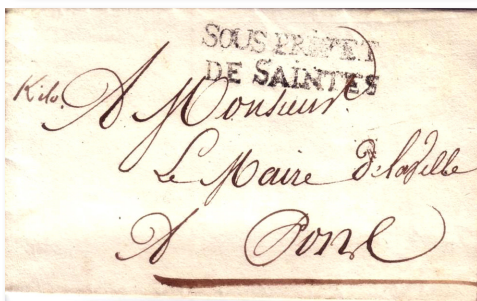 SOUS PRÉFET
DE SAINTES
Kilo.
A Monsieur
Le Maire de la Ville
A Pons